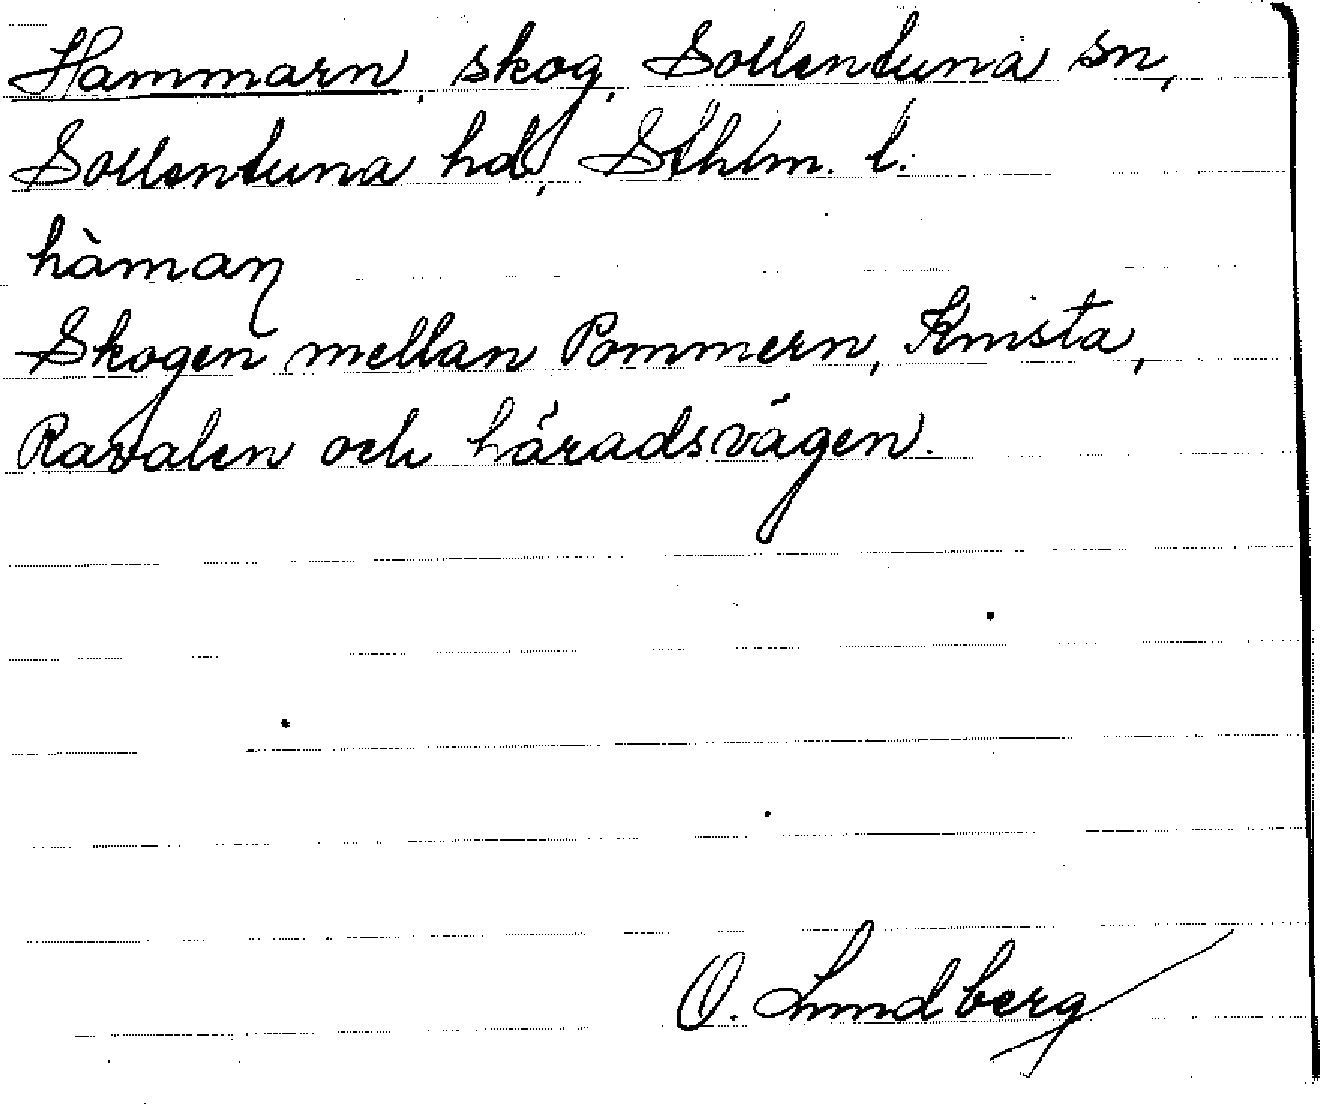 Hammarn, skog, Sollentuna sn,
Sollentuna hd, Sthlm. l.
hàmaɳ
Skogen mellan Pommern, Knista,
Ravalen och häradsvägen.
O. Lundberg